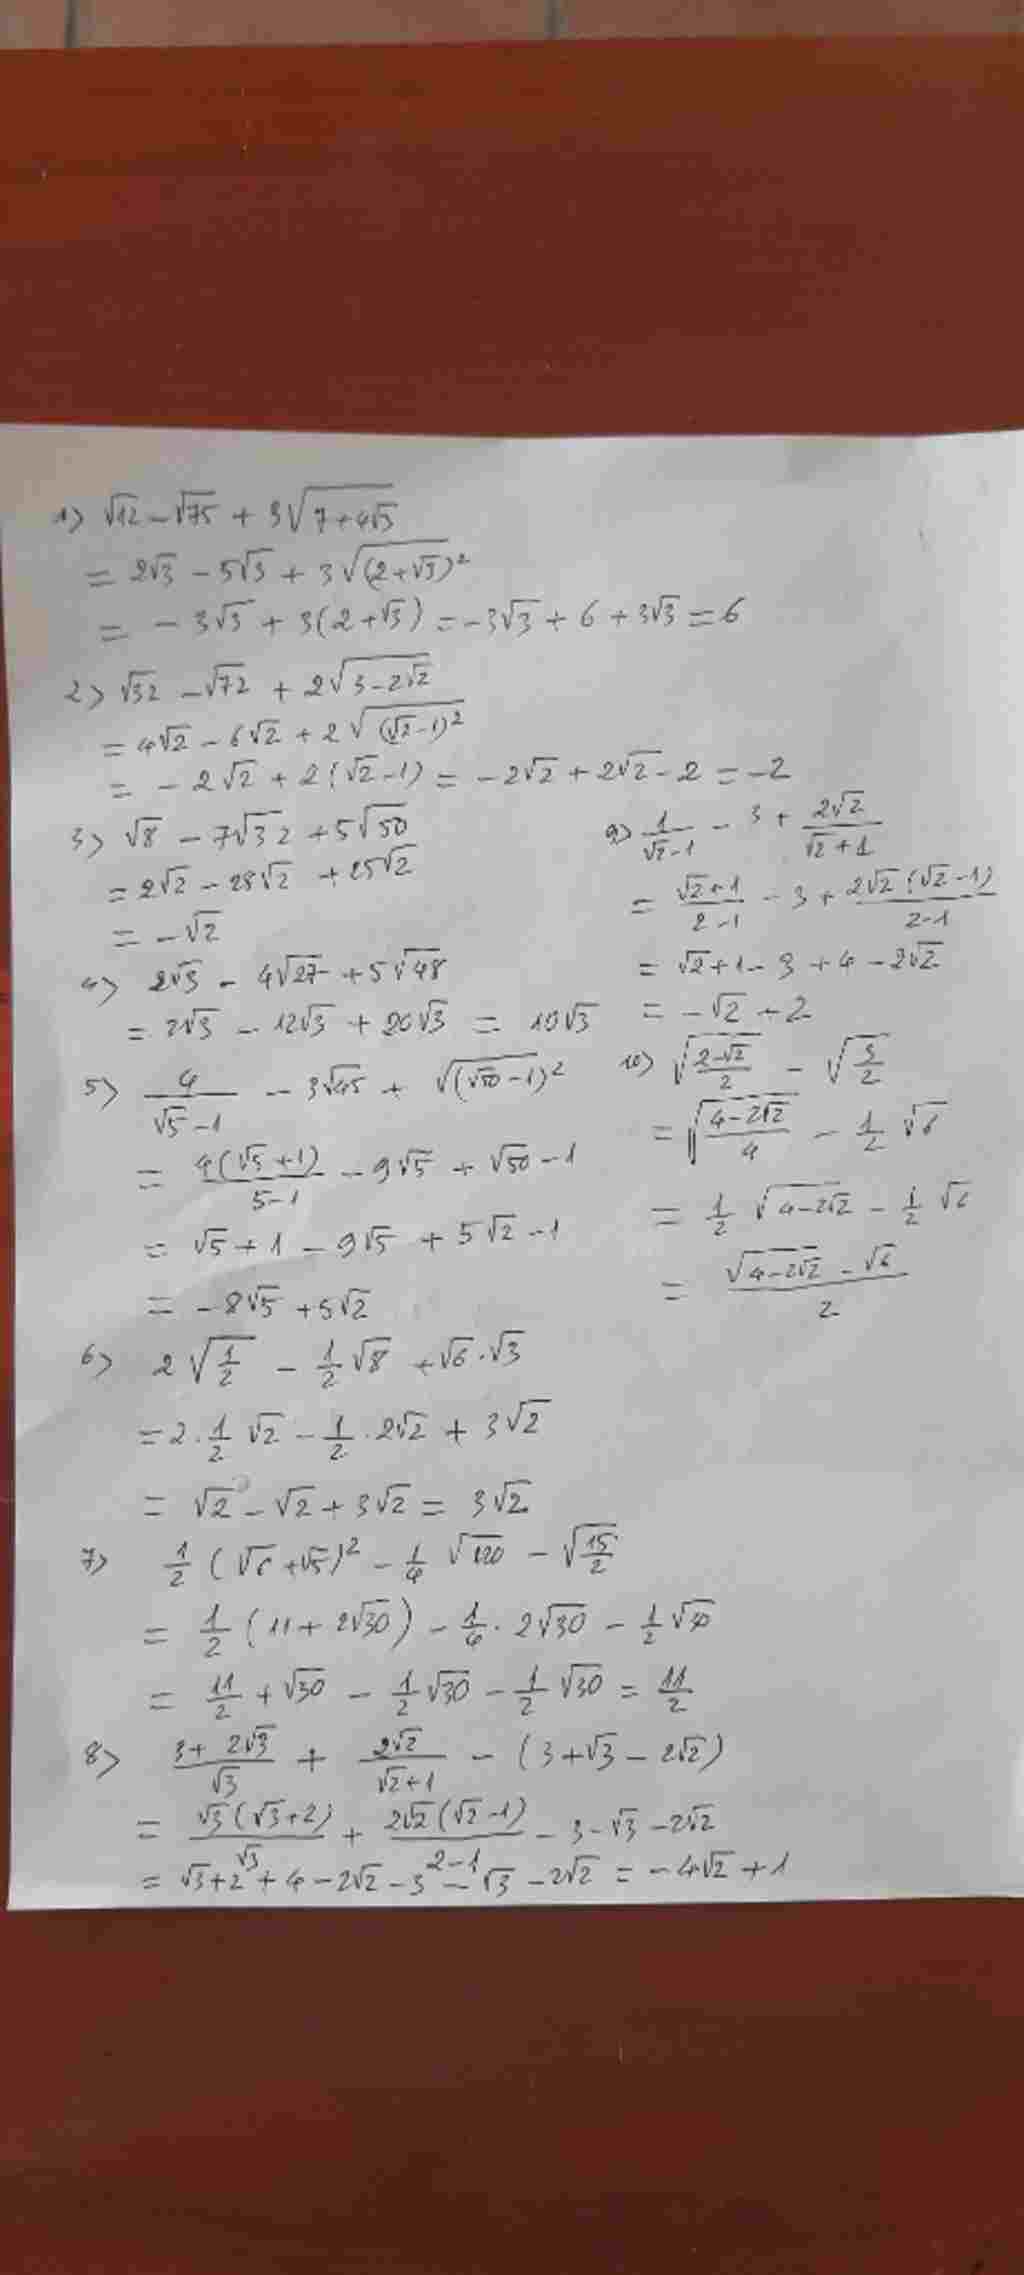 1) √12 - √75 + 3√(7+4√3)
= 2√3 - 5√3 + 3√((2+√3)²)
= - 3√3 + 3(2+√3) = -3√3 + 6 + 3√3 = 6
2) √32 - √72 + 2√(3-2√2)
= 4√2 - 6√2 + 2√((√2-1)²)
= - 2√2 + 2(√2-1) = -2√2 + 2√2 - 2 = -2
3) √8 - 7√32 + 5√50
= 2√2 - 28√2 + 25√2
= - √2
4) 2√3 - 4√27 + 5√48
= 2√3 - 12√3 + 20√3 = 10√3
5) 4/(√5-1) - 3√45 + √((√50-1)²)
= 4(√5+1)/(5-1) - 9√5 + √50 - 1
= √5 + 1 - 9√5 + 5√2 - 1
= - 8√5 + 5√2
6) 2√(1/2) - 1/2 √8 + √6 . √3
= 2 . 1/2 √2 - 1/2 . 2√2 + 3√2
= √2 - √2 + 3√2 = 3√2
7) 1/2 (√6+√5)² - 1/4 √120 - √(15/2)
= 1/2 (11 + 2√30) - 1/4 . 2√30 - 1/2 √30
= 11/2 + √30 - 1/2 √30 - 1/2 √30 = 11/2
8) (3+2√3)/√3 + 2√2/(√2+1) - (3+√3-2√2)
= √3(√3+2)/√3 + 2√2(√2-1)/(2-1) - 3 - √3 - 2√2
= √3+2 + 4 - 2√2 - 3 - √3 - 2√2 = - 4√2 + 1
9) 1/(√2-1) - 3 + 2√2/(√2+1)
= (√2+1)/(2-1) - 3 + 2√2(√2-1)/(2-1)
= √2+1 - 3 + 4 - 2√2
= -√2 + 2
10) √((2-√2)/2) - √(3/2)
= √((4-2√2)/4) - 1/2 √6
= 1/2 √(4-2√2) - 1/2 √6
= (√(4-2√2) - √6)/2